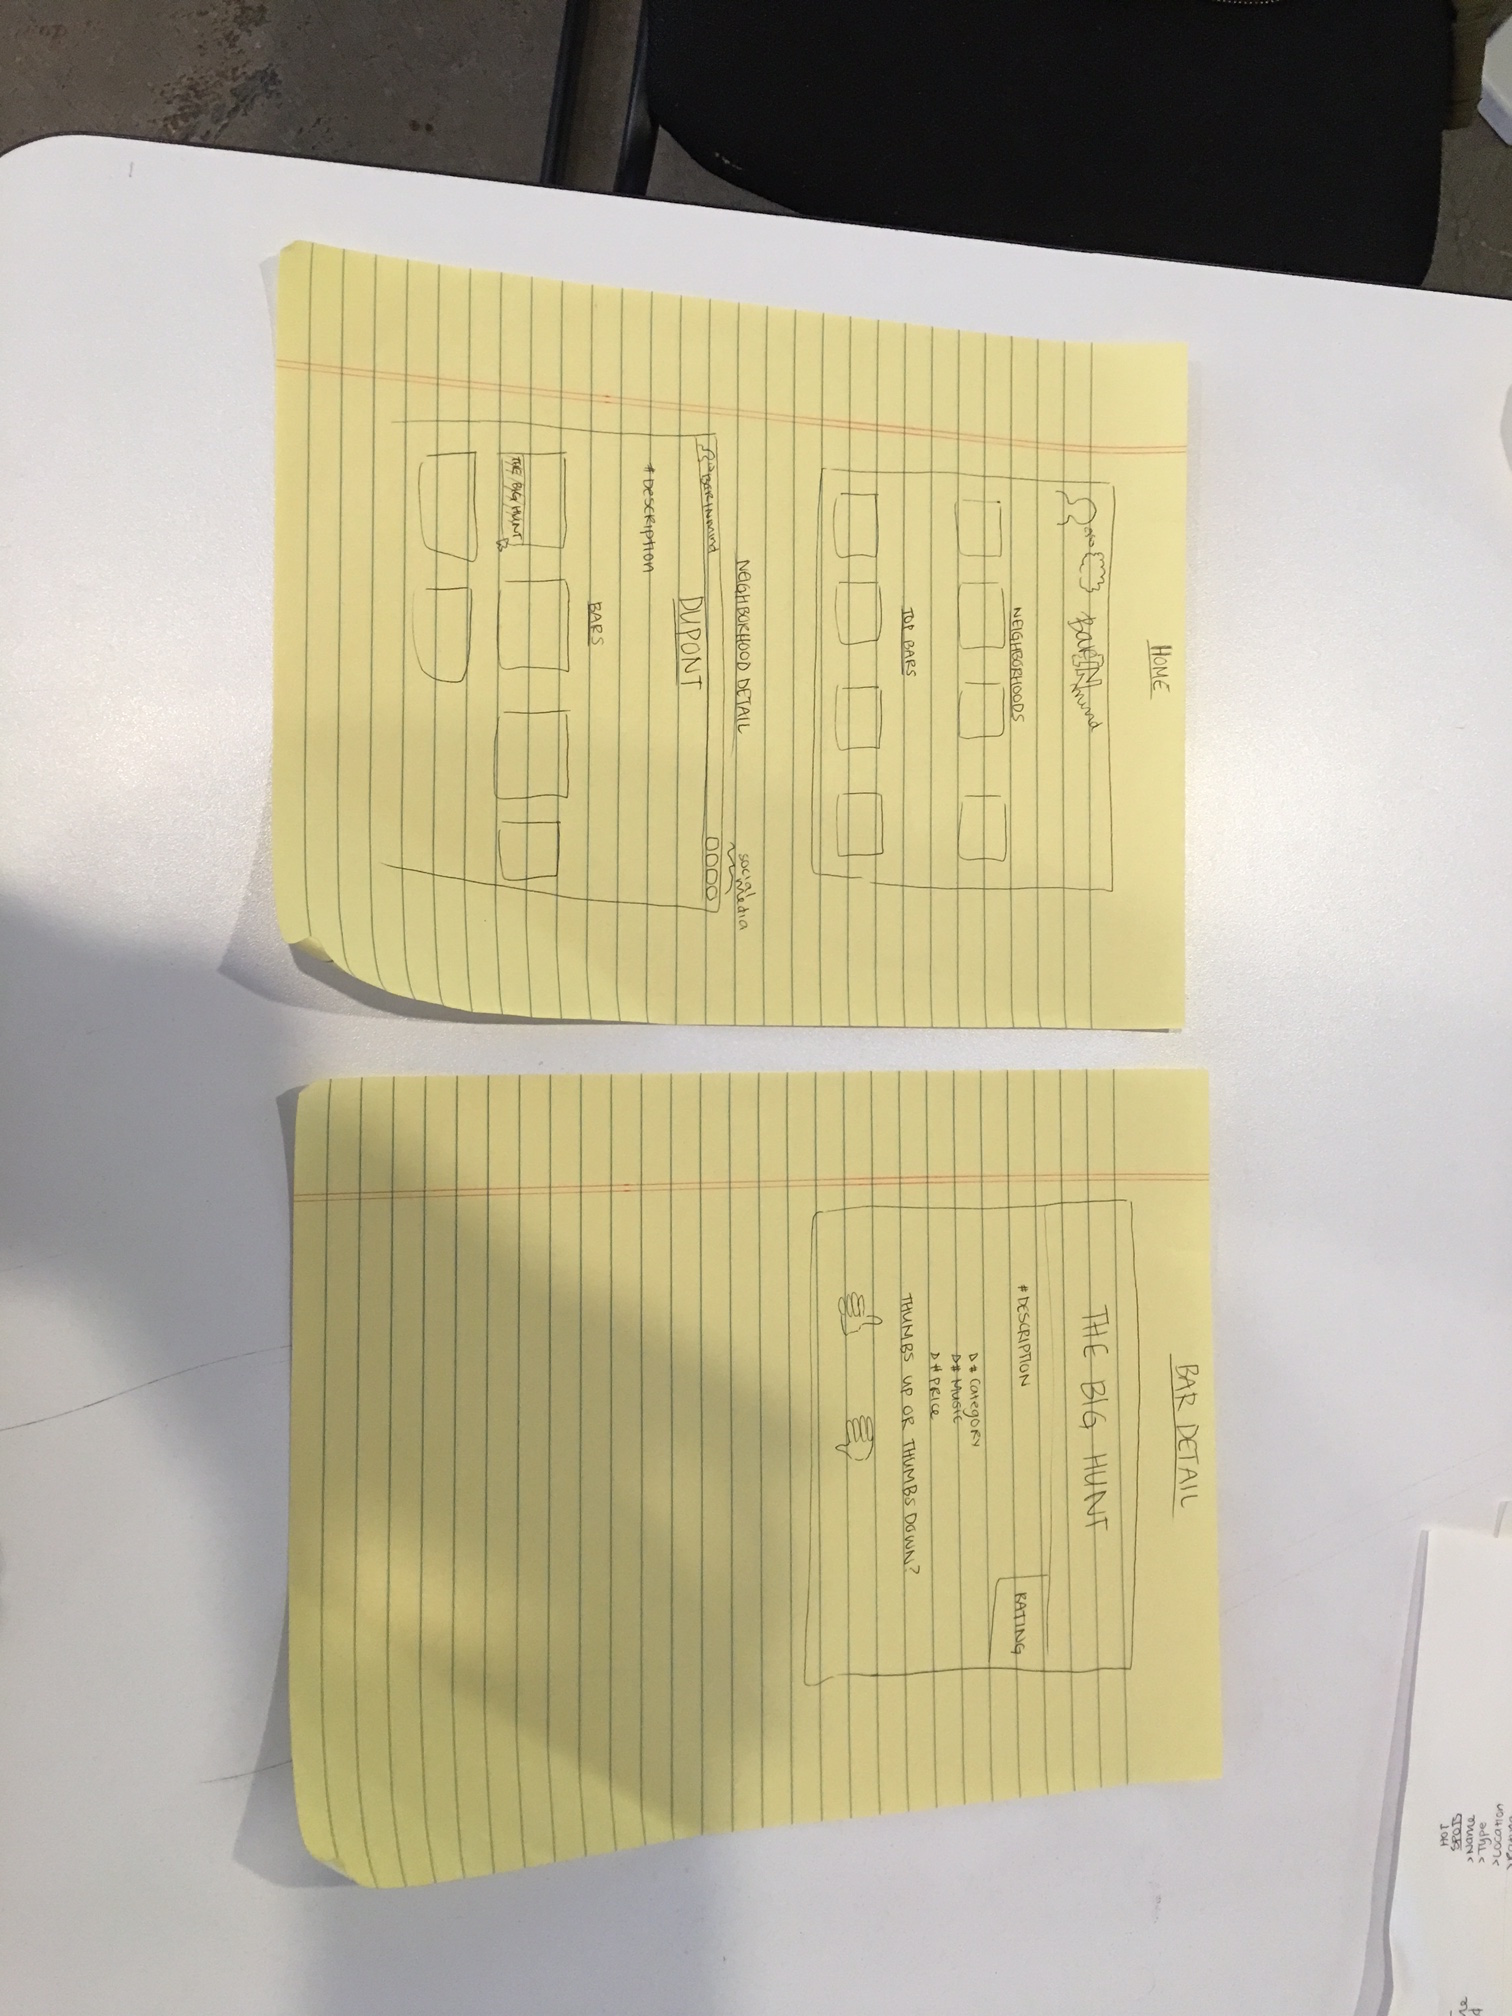 HOME
BarINmind
NEIGHBORHOODS
TOP BARS
NEIGHBORHOOD DETAIL
social media
BarINmind
DUPONT
# Description
BARS
THE BIG HUNT
BAR DETAIL
THE BIG HUNT
RATING
# DESCRIPTION
# Category
# Music
# Price
THUMBS UP OR THUMBS DOWN?
HOT
SPOTS
>Name
>Type
>Location